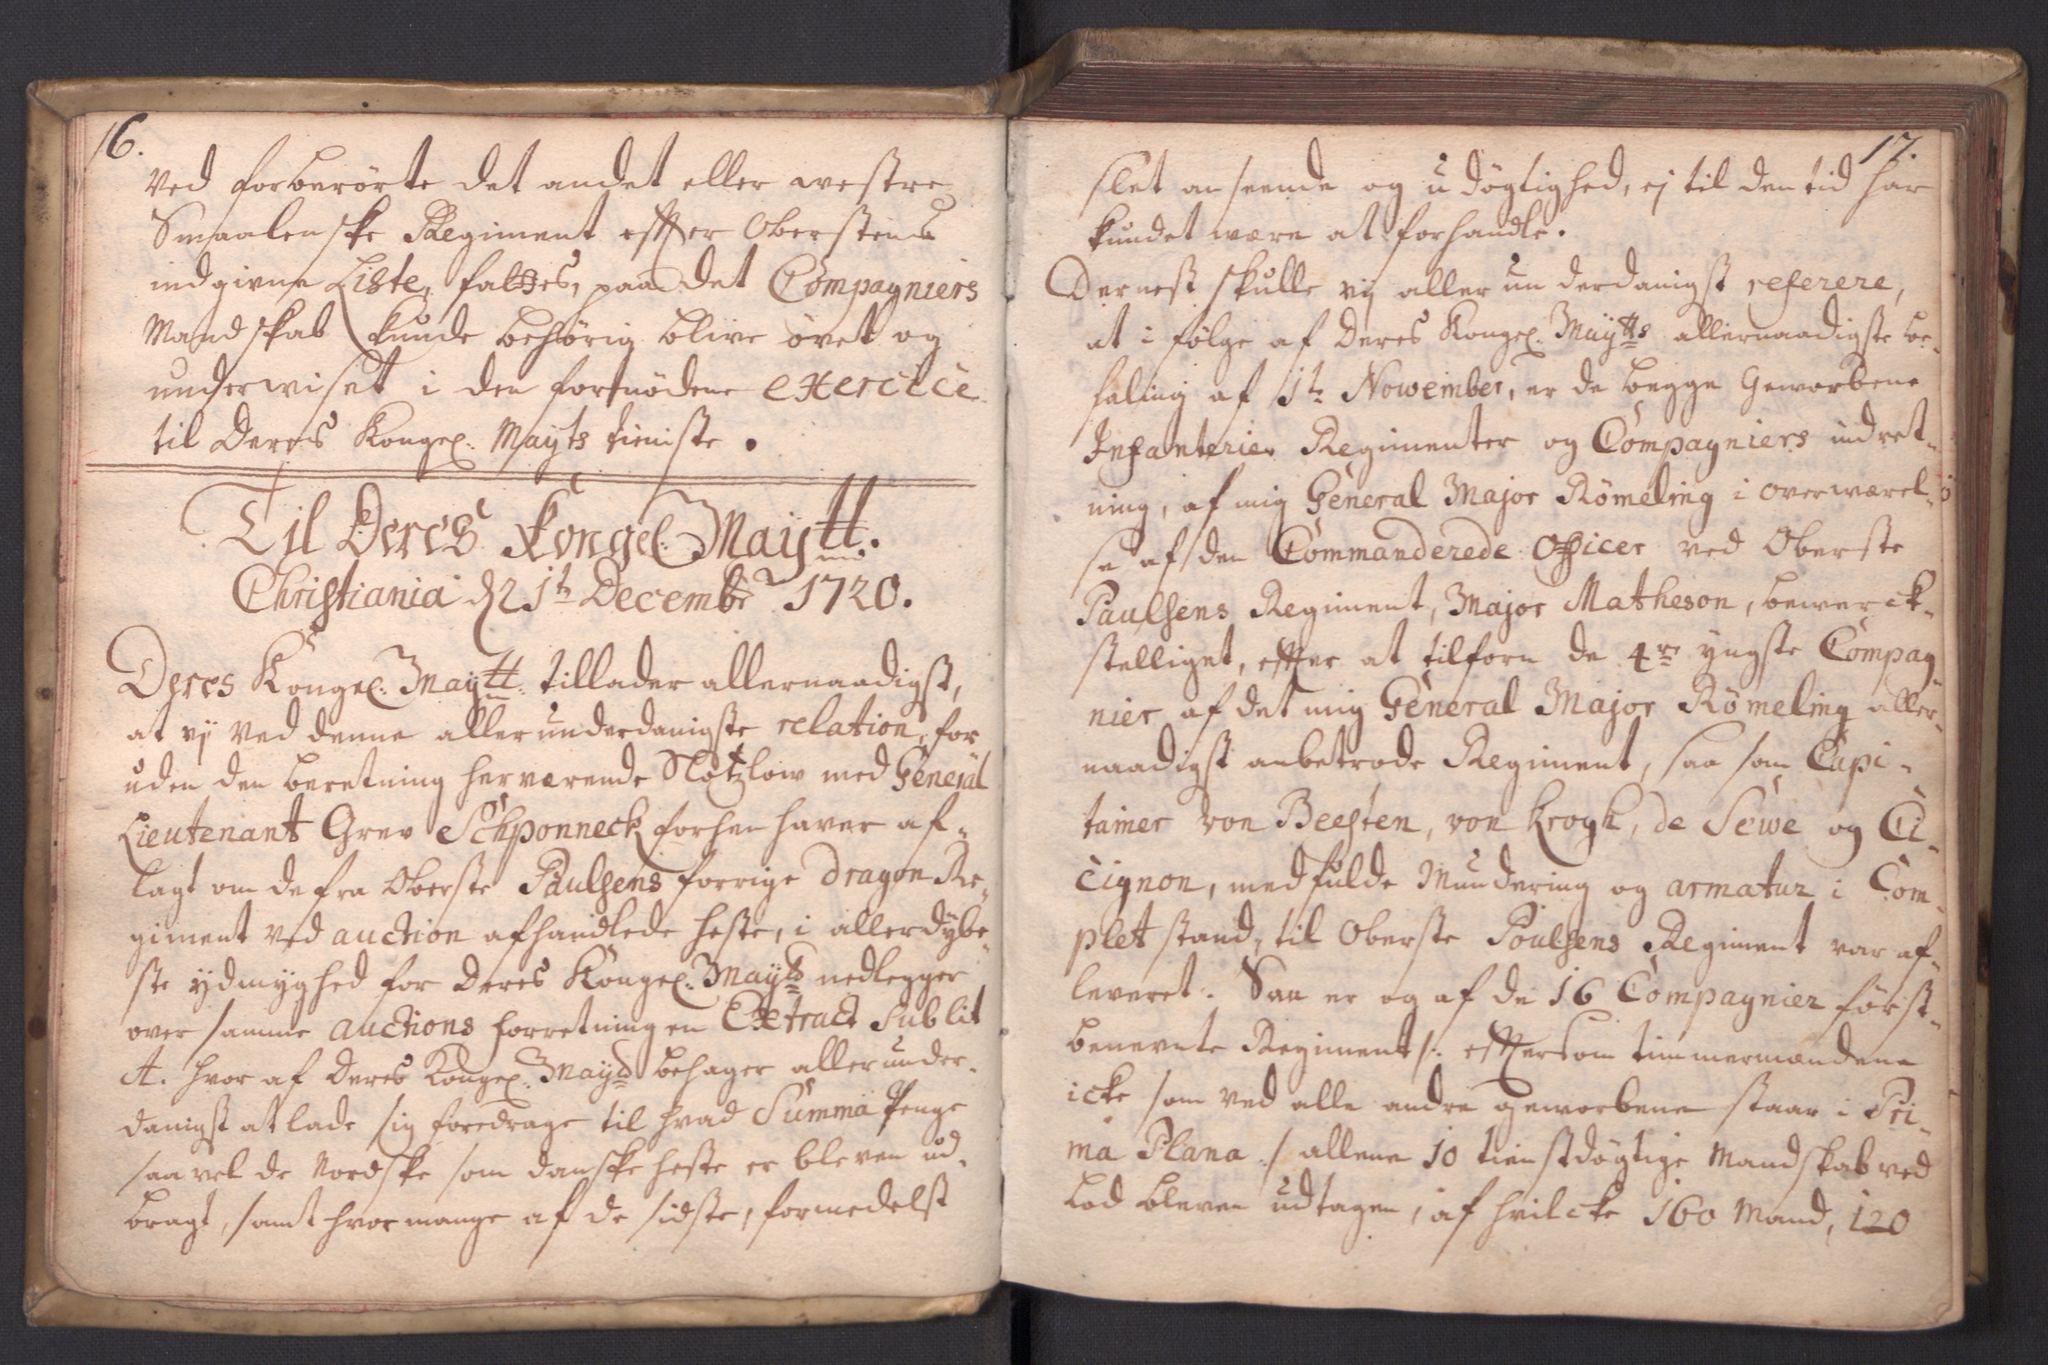 16.
Ved forberörte det andet eller westre
Smaalenske Regiment effter Oberstens
indgivne Liste, fattes, paa det Compagniers
Mandskab kunde behörig blive övet og
underwiset i den fornödene exercice
til Deres Kongel: Mayts tieniste.
Til Deres Kongel: Maytt.
Christiania d 21te Decembr 1720.
Deres Kongel: Maytt. tillader allernaadigst,
at vÿ ved denne allerunderdanigste relation, for
uden den beretning herværende Slotzlow med General
Lieutenant Grev Schponneck forhen haver af-
lagt om de fra Oberste Paulsens forrige Dragon Re-
giment ved auction afhandlede heste, i allerdÿbe-
ste ÿdmyghed for Deres Kongel: Mayts nedlegger
over samme auctions forretning en Extract Sub lit
A. hvor af Deres Kongel: Mayts behager allerunder-
danigst at lade sig foredrage til hvad Summa Penge
saa vel de Nordske som danske heste er bleven ud-
bragt, samt hvor mange af de sidste, formedelst
17.
slet anseende og udögtighed, ej til den tid har
kundet være at forhandle.
Dernest skulle vÿ allerunderdanigst referere,
at i fölge af Deres Kongel: Maytts allernaadigste be-
faling af 1te November, er de begge Geworbene
Infanterie Regimenter og Compagniers indret-
ning, af mig General Major Römeling i overwærel-
se af den Commanderede Officer ved Oberste
Paulsens Regiment, Major Matheson, bewerck-
stelliget, effter at tilforn de 4re yngste Compag
nier af det mig General Major Römeling aller-
naadigst anbetrode Regiment, saa som Capi-
tainer von Beesten, von Krogh, de Sewe og Ci-
cignon, med fulde Mundering og armatur i Com-
plet stand, til Oberste Poulsens Regiment var af-
leveret. Saa er og af de 16 Compagnier först-
benevnte Regiment /: efftersom timmermændene
icke som ved alle andre geworbene staar i Pri-
ma Plana :/ allene 10 tienstdögtige Mandskab ved
Lod bleven udtagen, af hvilcke 160 Mand, 120